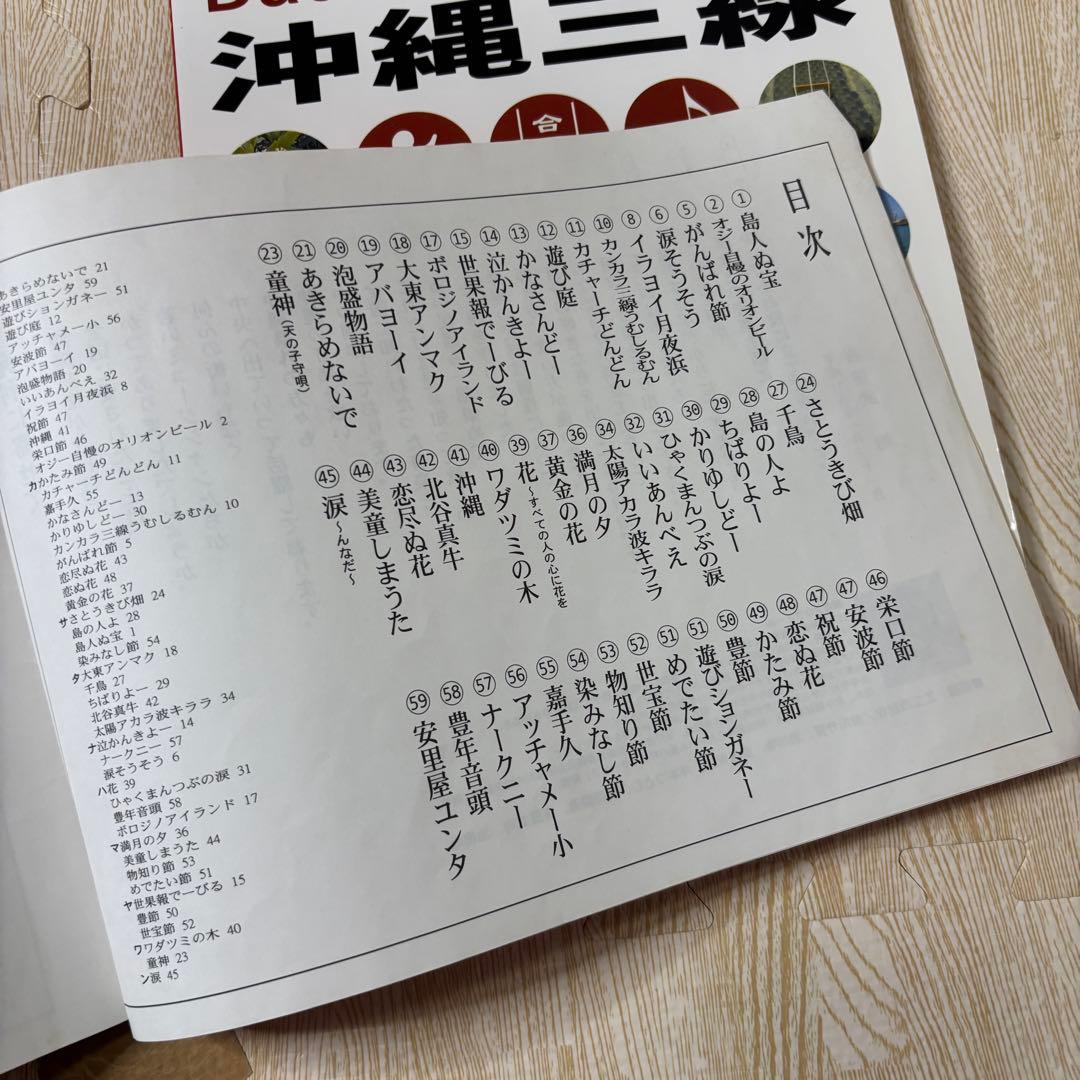 沖縄三線
合
目次
①島人ぬ宝
②オジー自慢のオリオンビール
⑤がんばれ節
⑥涙そうそう
⑧イラヨイ月夜浜
⑩カンカラ三線うむしるむん
⑪カチャーチどんどん
⑫遊び庭
⑬かなさんどー
⑭泣かんきよー
⑮世果報でーびる
⑰ボロジノアイランド
⑱大東アンマク
⑲アバヨーイ
⑳泡盛物語
㉑あきらめないで
㉓童神(天の子守唄)
㉔さとうきび畑
㉗千鳥
㉘島の人よ
㉙ちばりよー
㉚かりゆしどー
㉛ひゃくまんつぶの涙
㉜いいあんべえ
㉞太陽アカラ波キララ
㊱満月の夕
㊲黄金の花
㊴花~すべての人の心に花を
㊵ワダツミの木
㊶沖縄
㊷北谷真牛
㊸恋尽ぬ花
㊹美童しまうた
㊺涙~んなだ~
㊻栄口節
㊼安波節
㊼祝節
㊽恋ぬ花
㊾かたみ節
㊿豊節
51遊びションガネー
51めでたい節
52世宝節
53物知り節
54染みなし節
55嘉手久
56アッチャメー小
57ナークニー
58豊年音頭
59安里屋ユンタ
あきらめないで 21
安里屋ユンタ 59
遊びションガネー 51
遊び庭 12
アッチャメー小 56
安波節 47
アバヨーイ 19
泡盛物語 20
いいあんべえ 32
イラヨイ月夜浜 8
祝節 47
沖縄 41
栄口節 46
オジー自慢のオリオンビール 2
カかたみ節 49
カチャーチどんどん 11
嘉手久 55
かなさんどー 13
かりゆしどー 30
カンカラ三線うむしるむん 10
がんばれ節 5
恋尽ぬ花 43
恋ぬ花 48
黄金の花 37
サさとうきび畑 24
島の人よ 28
島人ぬ宝 1
染みなし節 54
タ大東アンマク 18
千鳥 27
ちばりよー 29
北谷真牛 42
太陽アカラ波キララ 34
ナ泣かんきよー 14
ナークニー 57
涙そうそう 6
ハ花 39
ひゃくまんつぶの涙 31
豊年音頭 58
ボロジノアイランド 17
マ満月の夕 36
美童しまうた 44
物知り節 53
めでたい節 51
ヤ世果報でーびる 15
豊節 50
世宝節 52
ワワダツミの木 40
童神 23
ン涙 45